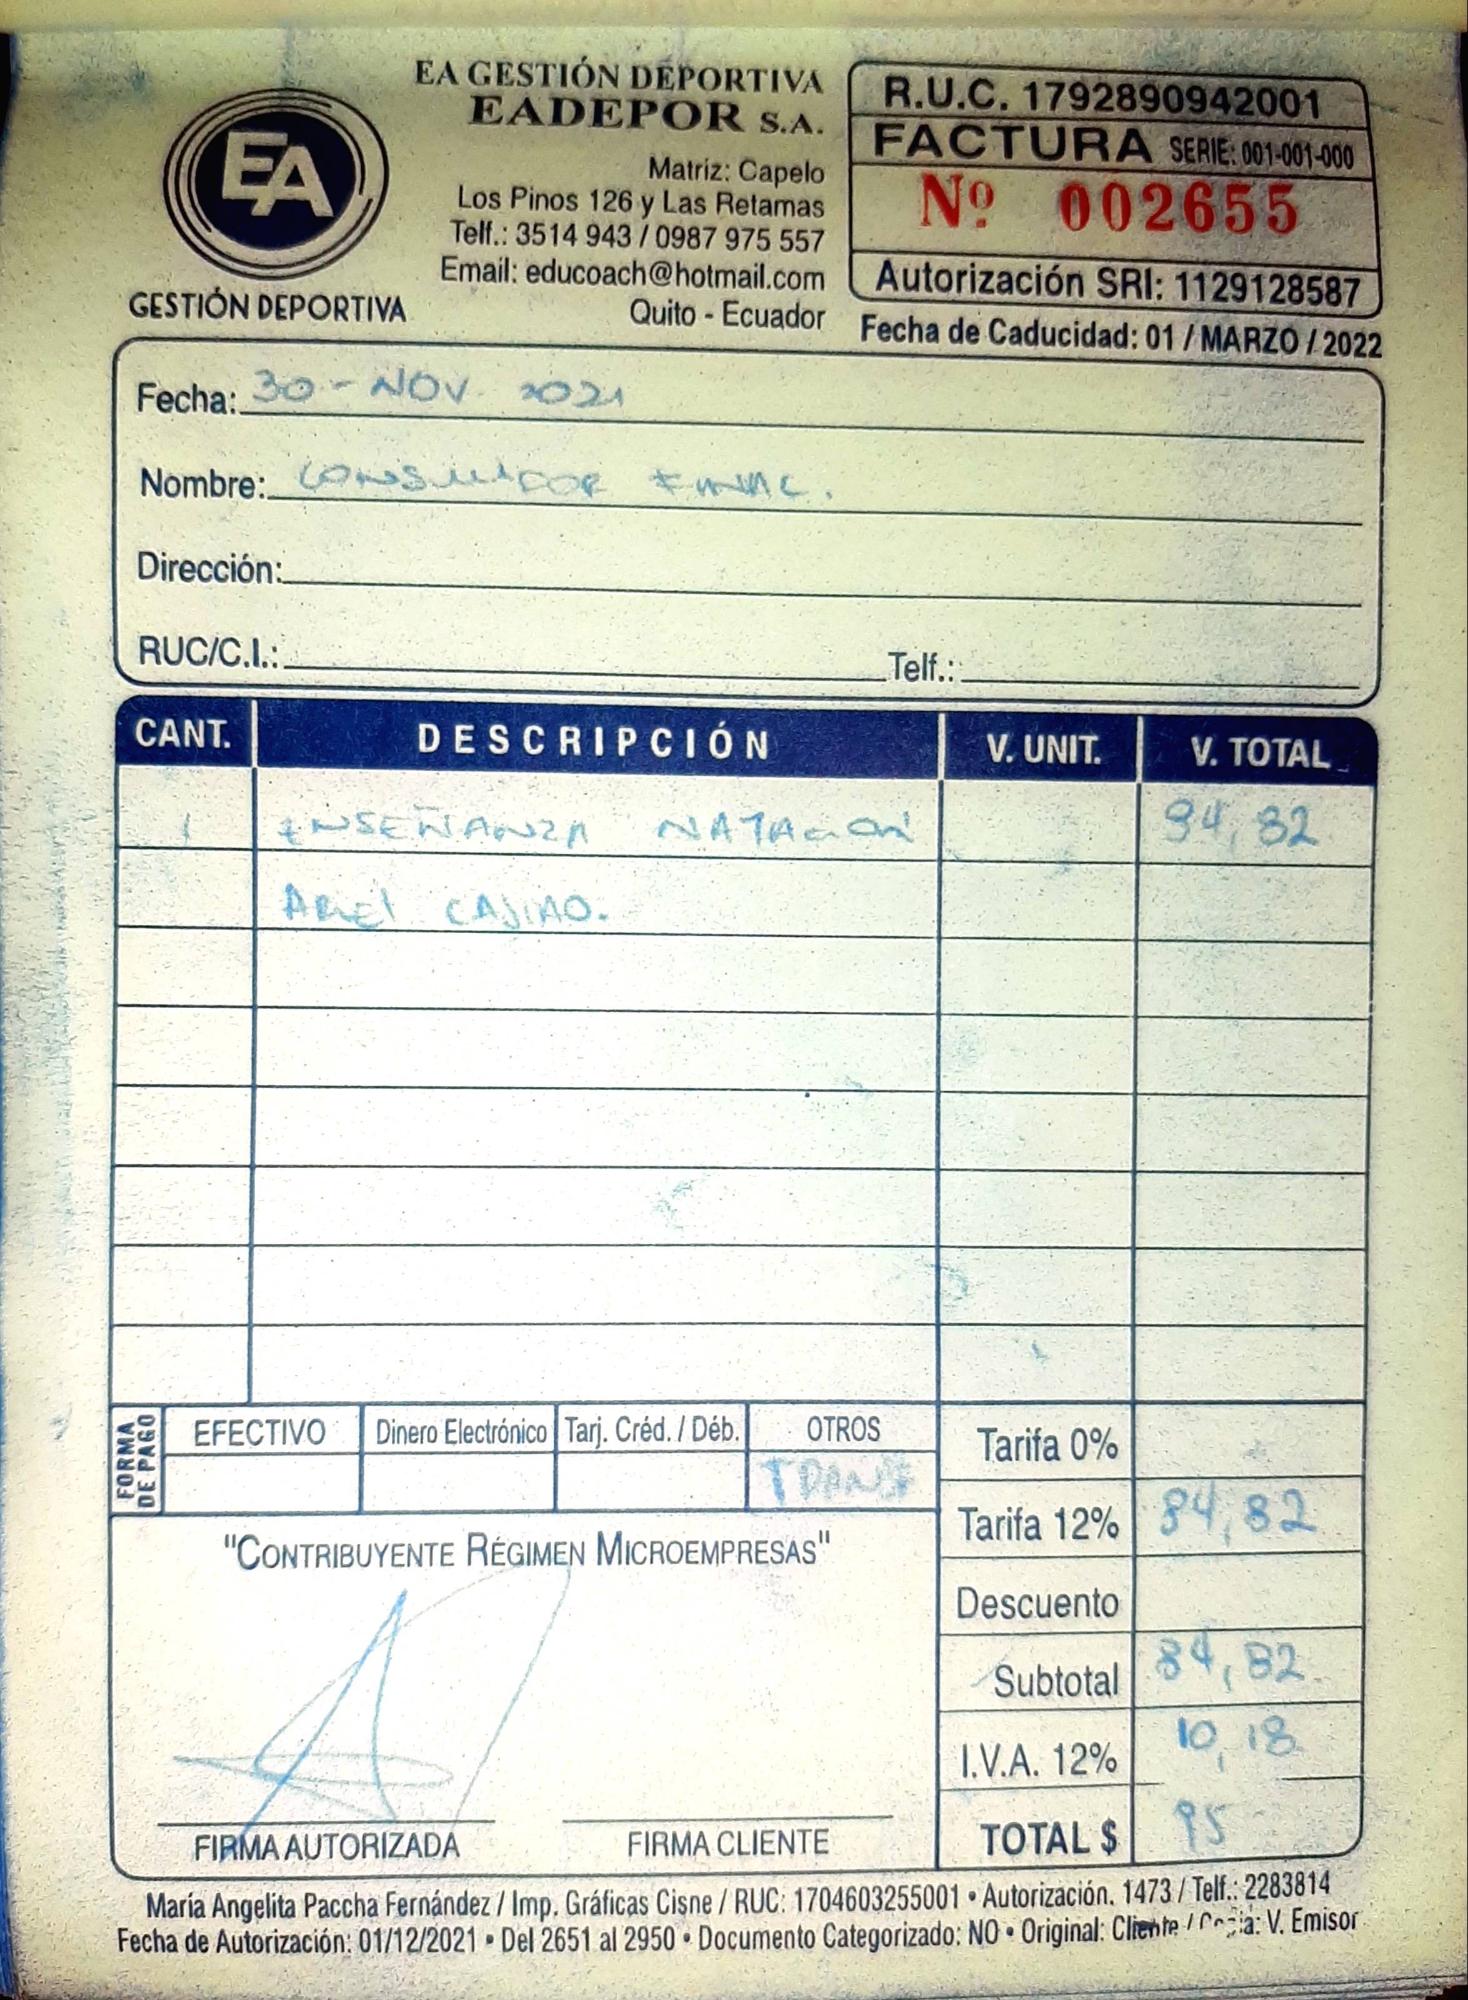 EA GESTIÓN DEPORTIVA
EADEPOR S.A.
Matriz: Capelo
Los Pinos 126 y Las Retamas
Telf.: 3514 943 / 0987 975 557
Email: educoach@hotmail.com
Quito - Ecuador
EA
GESTIÓN DEPORTIVA
R.U.C. 1792890942001
FACTURA SERIE: 001-001-000
Nº 002655
Autorización SRI: 1129128587
Fecha de Caducidad: 01 / MARZO / 2022
Fecha: 30 - NOV. 2021
Nombre: CONSUMIDOR FINAL.
Dirección:
RUC/C.I.: Telf.:
CANT. DESCRIPCIÓN V. UNIT. V. TOTAL
1 ENSEÑANZA NATACIÓN 84,82
ARIEL CAJIAO.
FORMA DE PAGO
EFECTIVO Dinero Electrónico Tarj. Créd. / Déb. OTROS
TRANSF
Tarifa 0%
Tarifa 12% 84,82
Descuento
Subtotal 84,82
I.V.A. 12% 10,18
TOTAL $ 95
"CONTRIBUYENTE RÉGIMEN MICROEMPRESAS"
FIRMA AUTORIZADA FIRMA CLIENTE
María Angelita Paccha Fernández / Imp. Gráficas Cisne / RUC: 1704603255001 • Autorización. 1473 / Telf.: 2283814
Fecha de Autorización: 01/12/2021 • Del 2651 al 2950 • Documento Categorizado: NO • Original: Cliente / Copia: V. Emisor